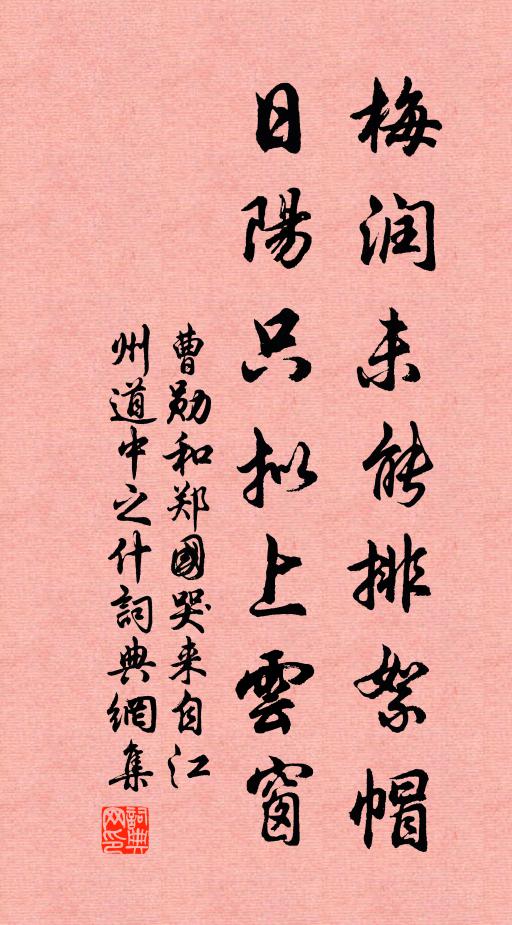 梅润未能排絮帽
日陽只拟上雲窗
曹勋和郑國哭来自江
州道中之什詞典網集
詞典网印